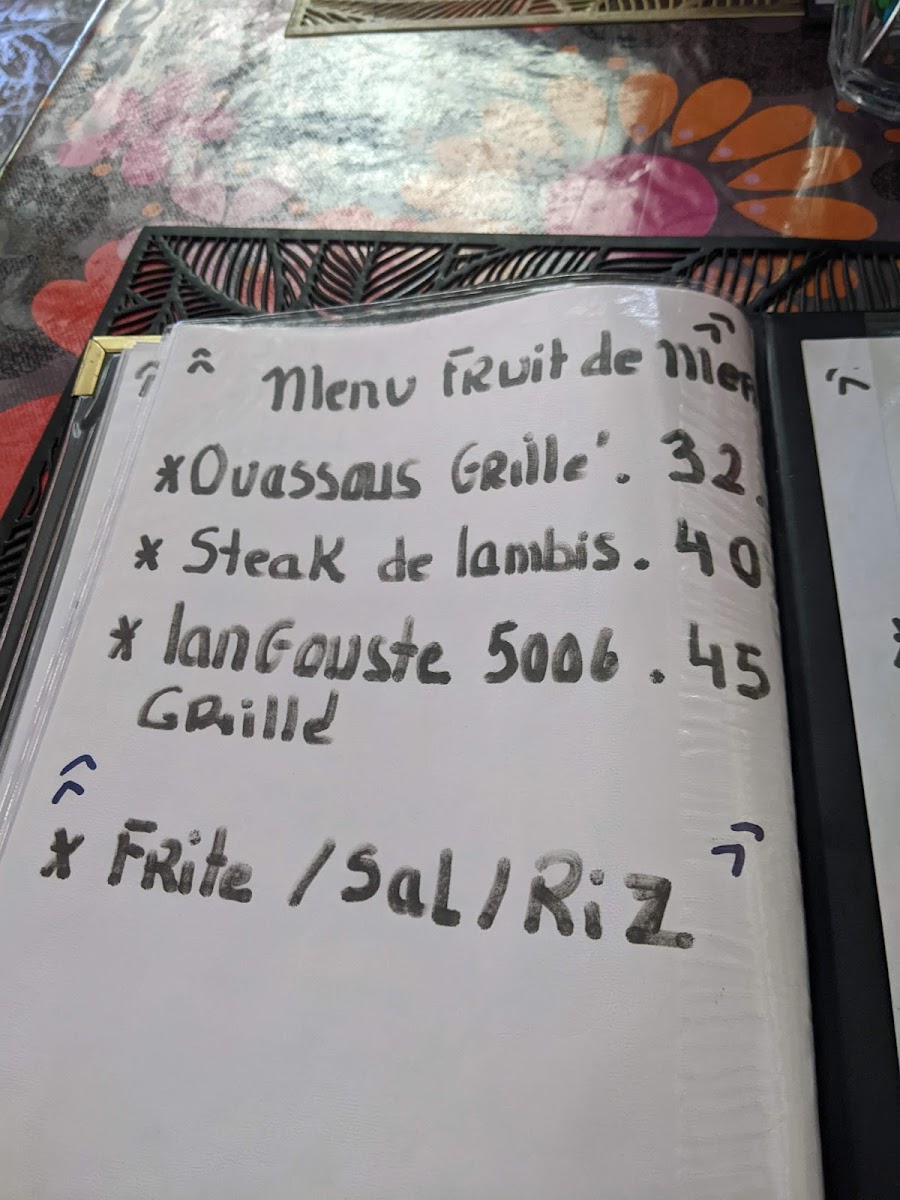 Menu Fruit de Mer
*Ouassous Grillé. 32.
* Steak de lambis. 40
* langouste 500G. 45
Grillé
* Frite / Sal / Riz